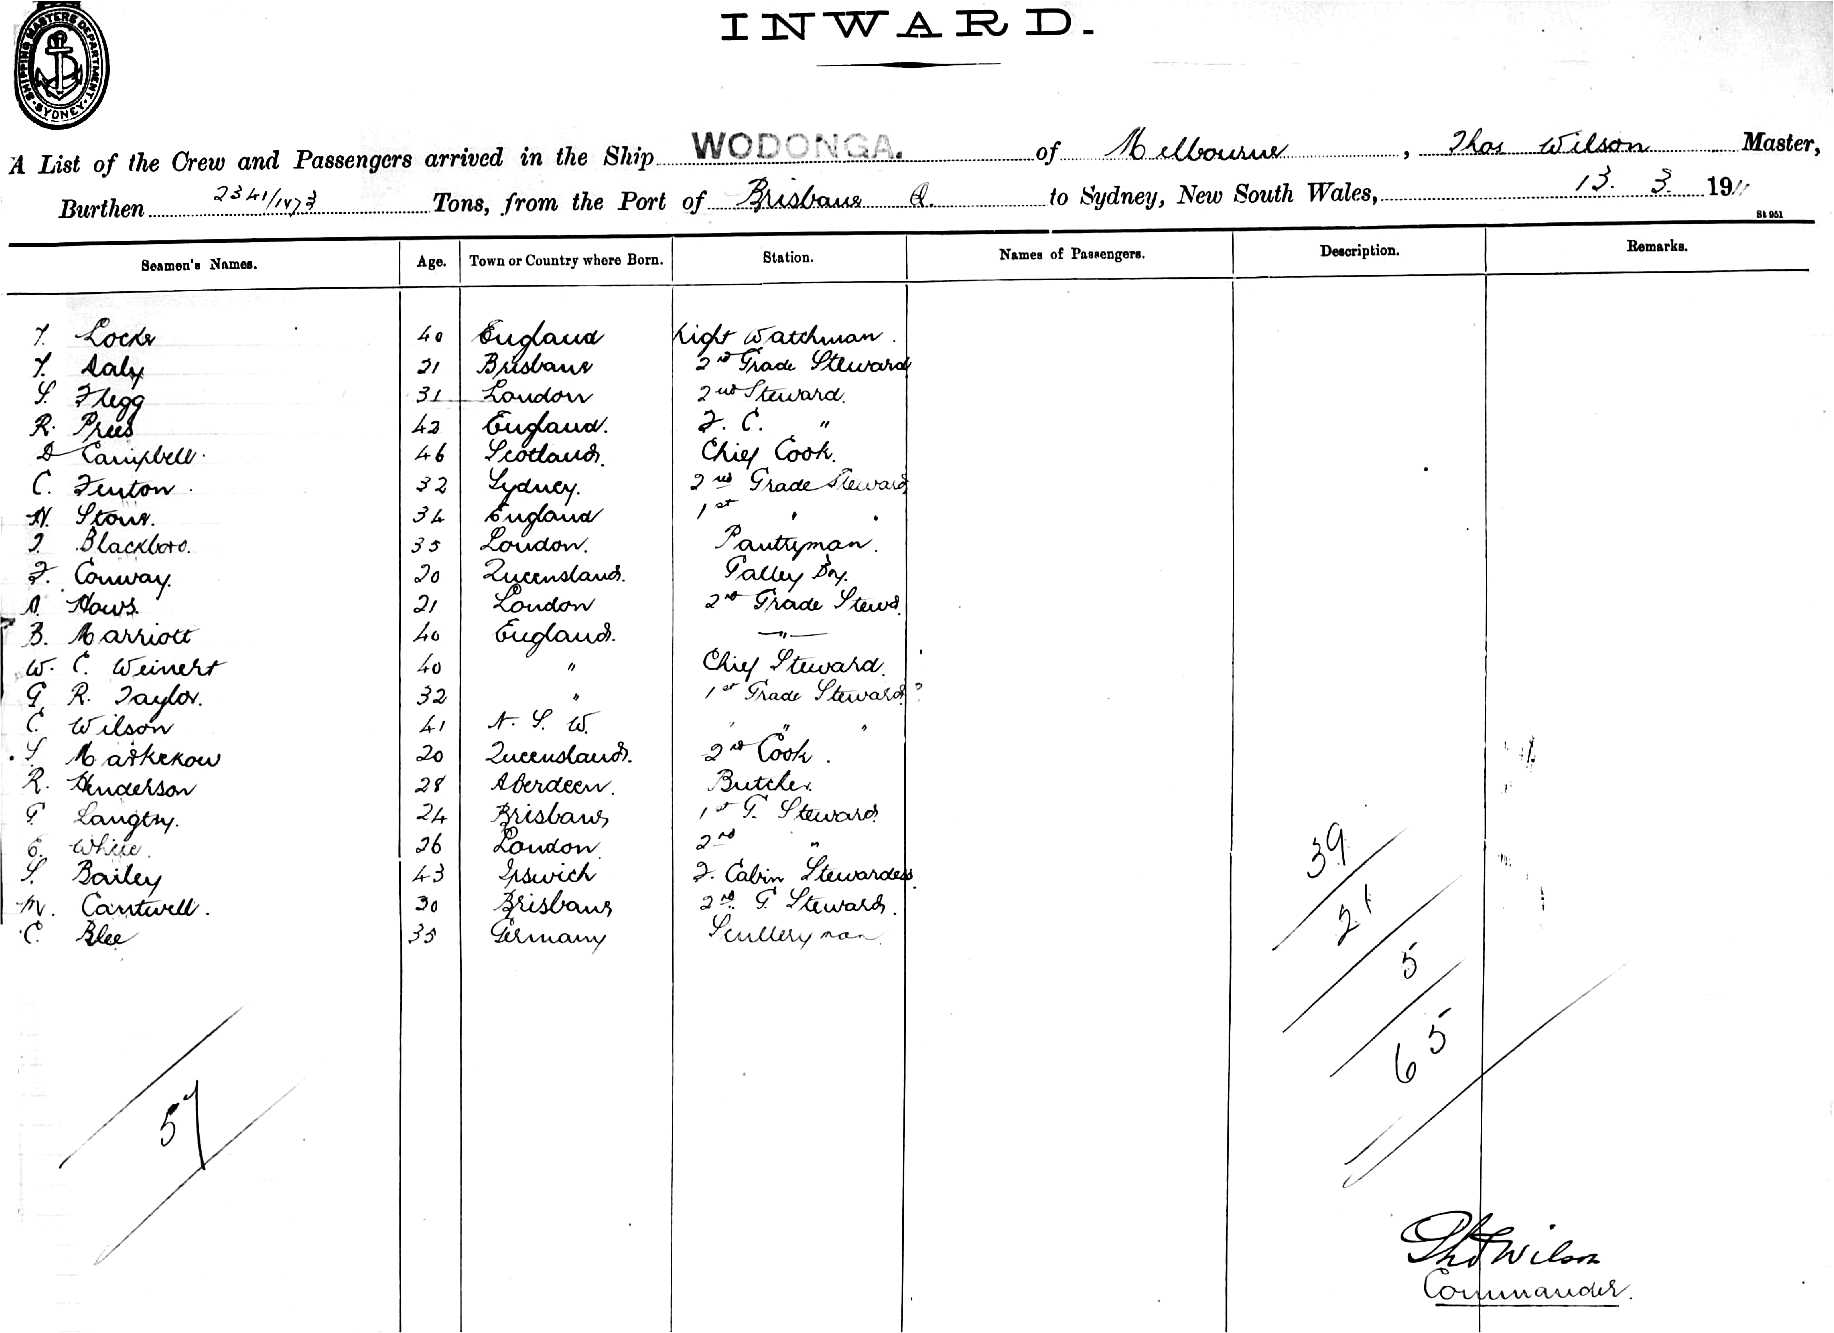 SHIPPING MASTERS DEPARTMENT
SYDNEY
INWARD.
A List of the Crew and Passengers arrived in the Ship WODONGA. of Melbourne, Thos Wilson Master,
Burthen 2341/1473 Tons, from the Port of Brisbane Q. to Sydney, New South Wales, 13. 3. 1911
St 951
Seamen's Names. Age. Town or Country where Born. Station. Names of Passengers. Description. Remarks.
Locke 40 England Light Watchman.
Daly 21 Brisbane 2nd Grade Steward
S. Flegg 31 London 2nd Steward.
R. Prees 42 England. F. C. "
D Campbell. 46 Scotland. Chief Cook.
C. Fenton. 32 Sydney. 2nd Grade Steward
Stone. 34 England 1st " "
Blackboro. 35 London. Pantryman.
F. Conway. 20 Queensland. Galley Boy.
Haws. 21 London 2nd Grade Stewd.
B. Marriott 40 England. —"—
W. C. Weinert 40 " Chief Steward.
G R. Taylor. 32 " 1st Grade Steward
C. Wilson 41 N. S. W. " " "
S 20 Queensland. 2nd Cook.
R. Henderson 28 Aberdeen. Butcher.
G. Langtry. 24 Brisbane 1st G. Steward
E. White. 26 London 2nd "
S. Bailey 43 Ipswich F. Cabin Stewardess.
M. Cantwell. 30 Brisbane 2nd G Steward.
C. Blee 35 Germany Sculleryman.
39
21
5
65
57
Thos Wilson
Commander.